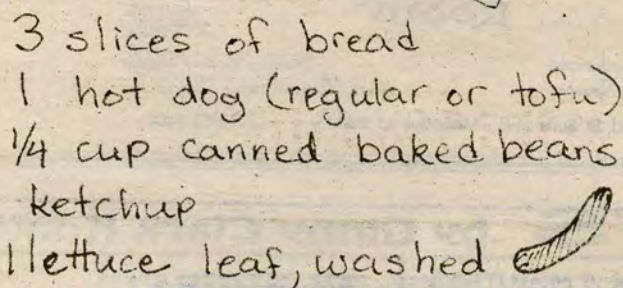 3 slices of bread
1 hot dog (regular or tofu)
1/4 cup canned baked beans
ketchup
1 lettuce leaf, washed